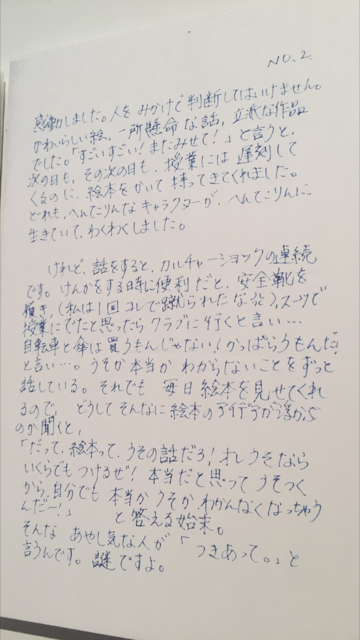 NO.2
感動しました。人をみかけで判断してはいけません。
かわいらしい絵、一所懸命な話、立派な作品
でした。「すごいすごい!またみせて!」と言うと、
次の日も、その次の日も、授業には遅刻して
くるのに、絵本をかいて持ってきてくれました。
どれも、へんてこりんなキャラクターが、へんてこりんに
生きていて、わくわくしました。
けれど、話をすると、カルチャーショックの連続
です。けんかをする時に便利だと、安全靴を
履き、(私は1回コレで蹴られたな)、スーツで
授業にでたと思ったらクラブに行くと言い…
自転車と傘は買うもんじゃない!かっぱらうもんだ!
と言い…。うそか本当かわからないことをずっと
話している。それでも毎日絵本を見せてくれ
るので、どうしてそんなに絵本のアイデアが浮かぶ
のか聞くと、
「だって、絵本って、うその話だろ!オレうそなら
いくらでもつけるぜ!本当だと思ってうそつく
から、自分でも本当かうそかわかんなくなっちゃう
んだー!」と答える始末。
そんなあやし気な人が「つきあって。」と
言うんです。謎ですよ。